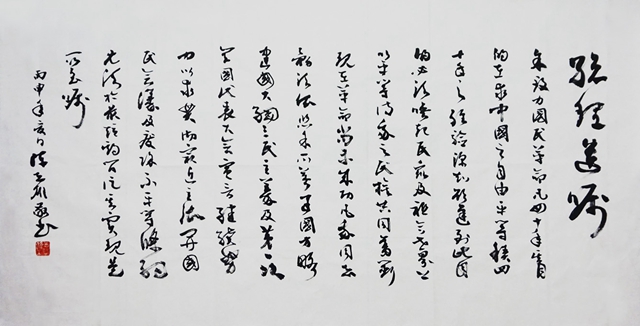 總理遺嘱
余致力國民革命凡四十年其目
的在求中國之自由平等積四
十年之经驗深知欲達到此目
的必須喚起民众及联合世界上
以平等待我之民族共同奮鬥
現在革命尚未成功凡我同志
務須依照余所著建國方略
建國大綱三民主義及第一次
全國代表大会宣言继续努
力以求貫彻最近主張開國
民会議及废除不平等條約
尤須於最短期間促其實現是
所至嘱
丙申年